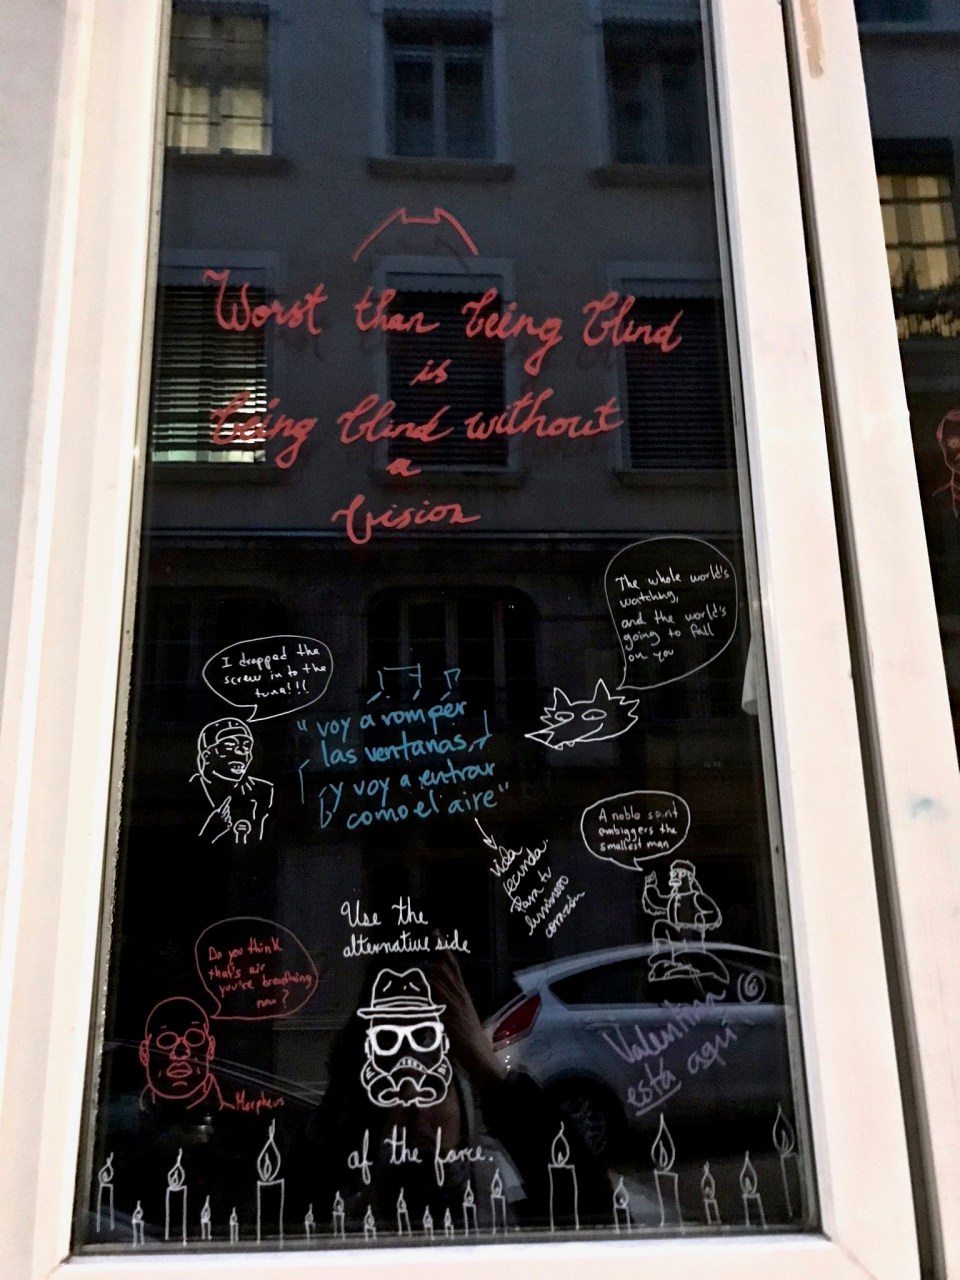 Worst than being blind
is
being blind without
a
vision
The whole world's
watching,
and the world's
going to fall
on you
I dropped the
screw in to the
tuna!!!
"voy a romper
las ventanas,
y voy a entrar
como el aire"
vida
fecunda
para tu
luminoso
corazón
A noble spirit
embiggers the
smallest man
Use the
alternative side
of the force.
Do you think
that's air
you're breathing
now?
Morpheus
Valentina
está aquí